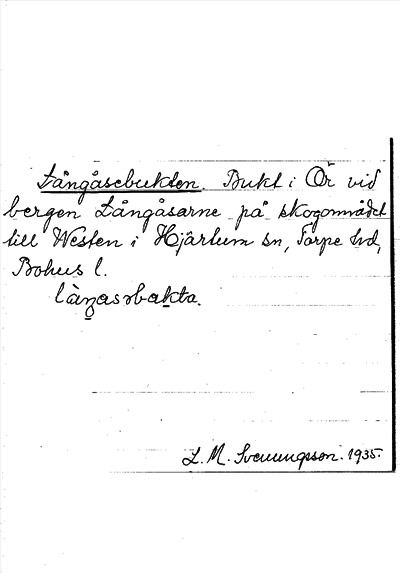 Långåsebukten. Bukt i Ör vid
bergen Långåsarne på skogområdet
till Westen i Hjärtum sn, Torpe hd,
Bohus l.
L. M. Svenungsson. 1935.